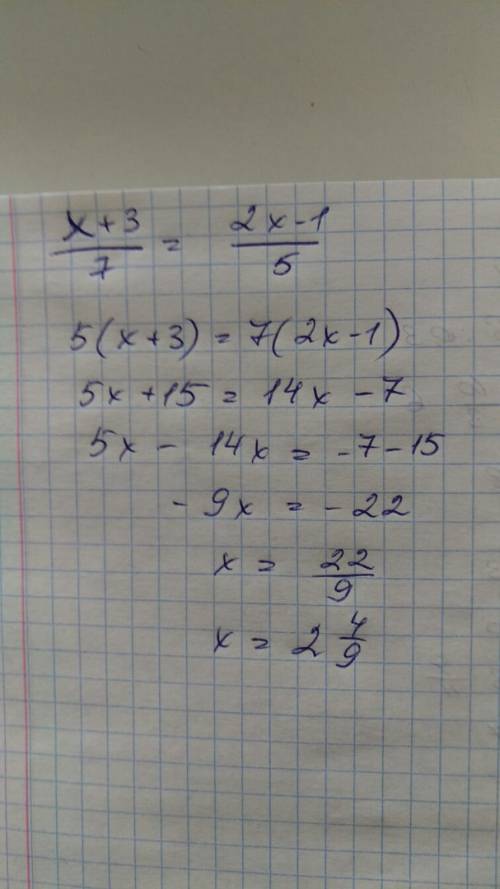 x+3/7 = 2x-1/5
5(x+3) = 7(2x-1)
5x+15 = 14x-7
5x - 14x = -7-15
-9x = -22
x = 22/9
x = 2 4/9